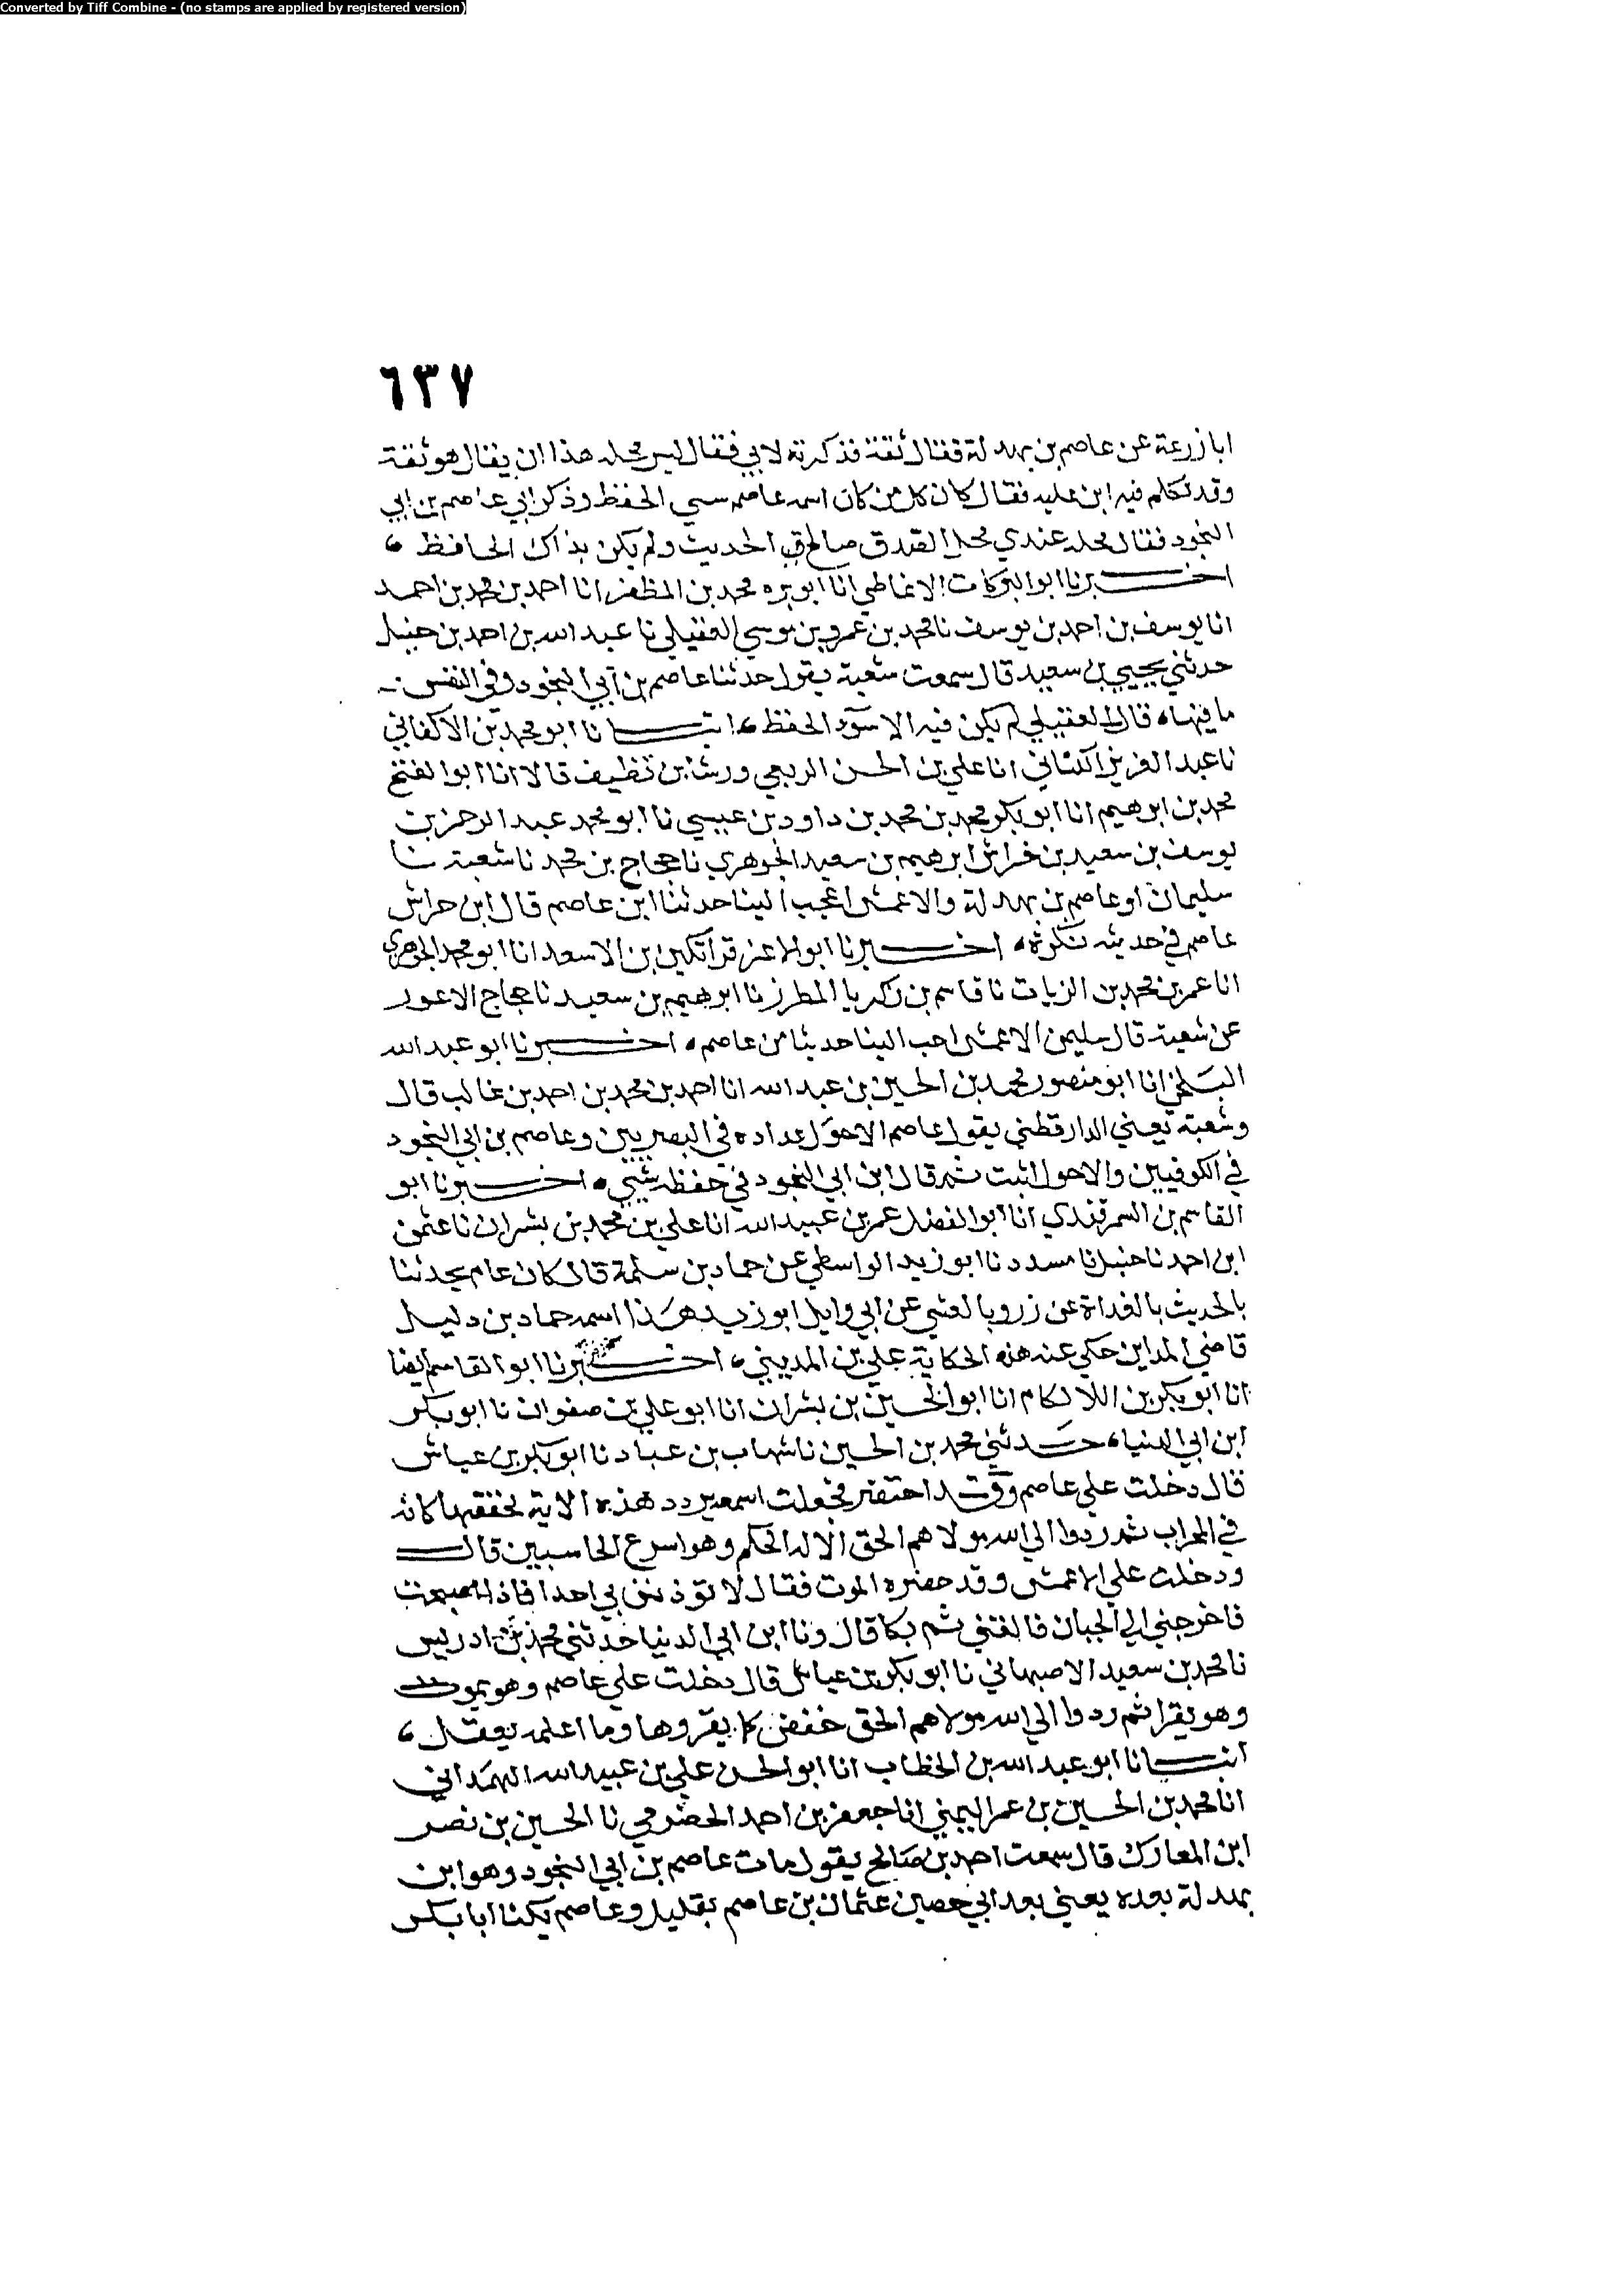 Converted by Tiff Combine - (no stamps are applied by registered version)
٦٣٧
ابا زرعة عن عاصم بن بهدلة فقال ثقة فذكرته لابي فقال ليس محله هذا ان يقال هو ثقة
وقد تكلم فيه ابن عليه فقال كان كل من كان اسمه عاصم سيي الحفظ وذكر ابي عاصم بن ابي
النجود فقال محله عندي محل الصدق صالح الحديث ولم يكن بذاك الحافظ ،
اخــبرنا ابو البركات الانماطي انا ابو بره محمد بن المظفر انا احمد بن محمد بن احمد
انا يوسف بن احمد بن يوسف نا محمد بن عمرو بن موسي العقيلي نا عبد الله بن احمد بن حنبل
حدثني يحيي بن سعيد قال سمعت شعبة يقول حدثنا عاصم بن ابي النجود وفي النفس
ما فيها، قال العقيلي لم يكن فيه الا سوء الحفظ ، انبــانا ابو محمد بن الاكفاني
نا عبد العزيز الكتاني انا علي بن الحسن الربعي ورشا بن نظيف قالا انا ابو الفتح
محمد بن ابرهيم انا ابو بكر محمد بن محمد بن داود بن عيسي نا ابو محمد عبد الرحمن بن
يوسف بن سعيد بن خراش ابرهيم بن سعيد الجوهري نا حجاج بن محمد نا شعبة نا
سليمان او عاصم بن بهدلة والاعمش اعجب الينا حدثنا ابن عاصم قال ابن حراش
عاصم في حديثه نكرة، اخــبرنا ابو الاعز قراتكين بن الاسعد انا ابو محمد الجوهري
انا عمر بن محمد بن الزيات نا قاسم بن زكريا المطرز نا ابرهيم بن سعيد نا حجاج الاعور
عن شعبة قال سليمن الاعمش احب الينا حديثا من عاصم، اخــبرنا ابو عبد الله
البلخي انا ابو منصور محمد بن الحسين بن عبد الله انا احمد بن محمد بن احمد بن غالب قال
وشعبة يعني الدارقطني يقول عاصم الاحول عداده في البصريين وعاصم بن ابي النجود
في الكوفيين والاحول اثبت ثم قال ابن ابي النجود في حفظه شيي، اخــبرنا ابو
القاسم بن السمرقندي انا ابو الفضل عمر بن عبيد الله انا علي بن محمد بن بشران نا عثمن
ابن احمد نا حنبل نا مسدد نا ابو زيد الواسطي عن حماد بن سلمة قال كان عاصم يحدثنا
بالحديث بالغداة عن زر وبالعشي عن ابي وايل ابو زيد هذا اسمه حماد بن دليل
قاضي المداين حكي عنه هذه الحكاية علي بن المديني، اخــبرنا ابو القاسم ايضا
انا ابو بكر بن اللالكام انا ابو الحسين بن بشران انا ابو علي بن صفوان نا ابو بكر
ابن ابي الدنيا، حــدثني محمد بن الحسين نا شهاب بن عباد نا ابو بكر بن عياش
قال دخلت علي عاصم وقد احتضر فجعلت اسمعه يردد هذه الاية يحققها كانه
في المحراب ثم ردوا الي الله مولاهم الحق الا له الحكم وهو اسرع الحاسبين قال
ودخلت علي الاعمش وقد حضره الموت فقال لا توذنن بي احدا فاذا اصبحت
فاخرجني الي الجبان فالقني ثم بكا قال ونا ابن ابي الدنيا حدثني محمد بن ادريس
نا محمد بن سعيد الاصبهاني نا ابو بكر بن عياش قال دخلت علي عاصم وهو يموت
وهو يقرا ثم ردوا الي الله مولاهم الحق خفض كما يقروها وما اعلمه يعقل ،
انبــانا ابو عبد الله بن الخطاب انا ابو الحسن علي بن عبيد الله الهمداني
انا محمد بن الحسين بن عمر اليمني انا جعفر بن احمد الحضرمي نا الحسين بن نصر
ابن المعارك قال سمعت احمد بن صالح يقول مات عاصم بن ابي النجود وهو ابن
بهدلة بعده يعني بعد ابي حصين عثمان بن عاصم بقليل وعاصم يكنا ابا بكر